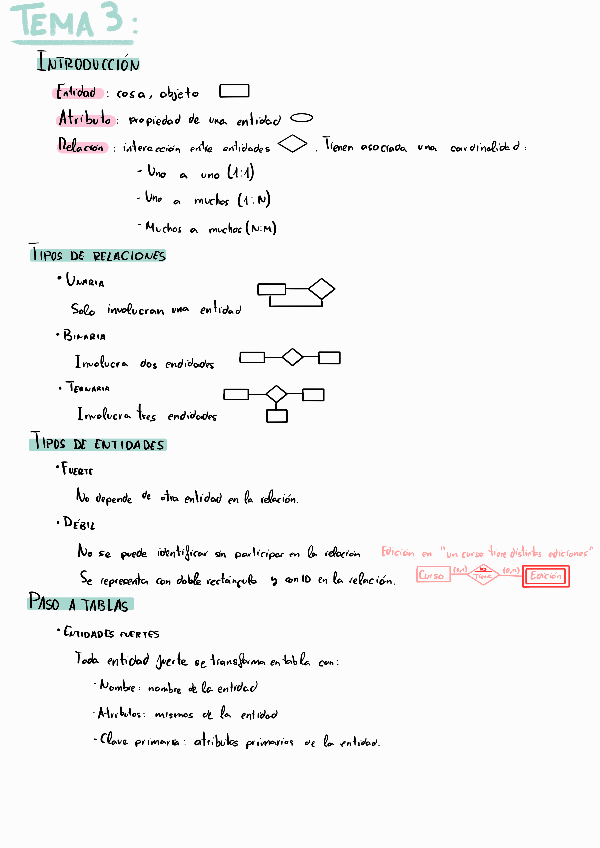 TEMA 3:
INTRODUCCIÓN
Entidad: cosa, objeto
Atributo: propiedad de una entidad
Relación: interacción entre entidades . Tienen asociada una cardinalidad:
- Uno a uno (1:1)
- Uno a muchos (1:N)
- Muchos a muchos (N:M)
TIPOS DE RELACIONES
• UNARIA
Solo involucran una entidad
• BINARIA
Involucra dos endidades
• TERNARIA
Involucra tres endidades
TIPOS DE ENTIDADES
• FUERTE
No depende de otra entidad en la relación.
• DÉBIL
No se puede identificar sin participar en la relación
Edición en "un curso tiene distintas ediciones"
Se representa con doble rectángulo y con ID en la relación.
Curso (0,1) ID Tiene (0,n) Edición
PASO A TABLAS
• ENTIDADES FUERTES
Toda entidad fuerte se transforma en tabla con:
- Nombre: nombre de la entidad
- Atributos: mismos de la entidad
- Clave primaria: atributos primarios de la entidad.